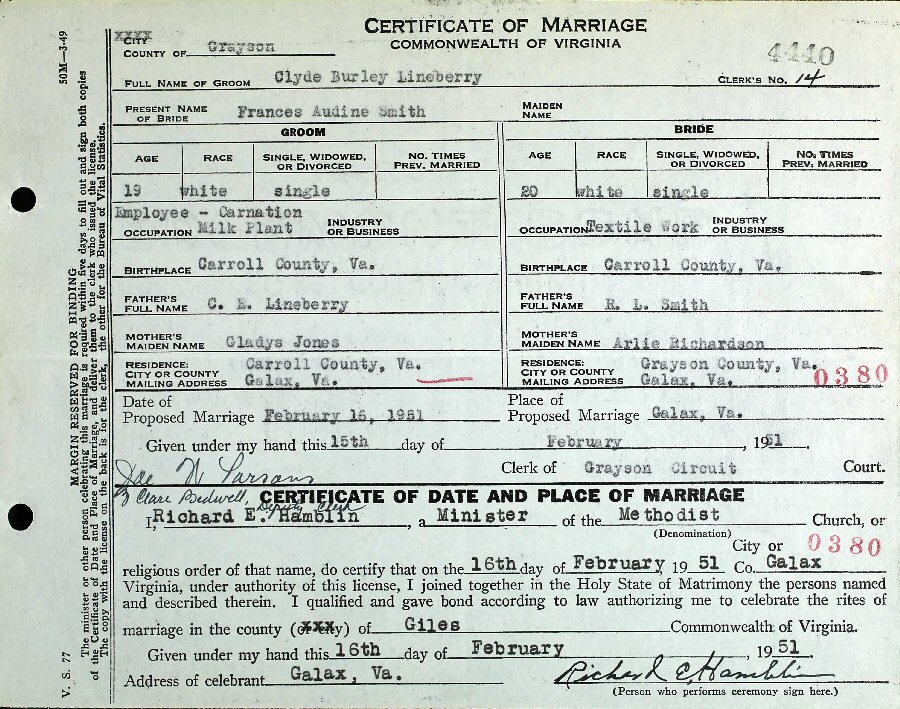 CERTIFICATE OF MARRIAGE
COMMONWEALTH OF VIRGINIA
XXXX
CITY
COUNTY OF Grayson
4440
FULL NAME OF GROOM Clyde Burley Lineberry CLERK'S NO. 14
PRESENT NAME OF BRIDE Frances Audine Smith MAIDEN NAME
GROOM BRIDE
AGE RACE SINGLE, WIDOWED, OR DIVORCED NO. TIMES PREV. MARRIED AGE RACE SINGLE, WIDOWED, OR DIVORCED NO. TIMES PREV. MARRIED
19 white single 20 white single
Employee - Carnation
OCCUPATION Milk Plant INDUSTRY OR BUSINESS OCCUPATION Textile Work INDUSTRY OR BUSINESS
BIRTHPLACE Carroll County, Va. BIRTHPLACE Carroll County, Va.
FATHER'S FULL NAME C. E. Lineberry FATHER'S FULL NAME R. L. Smith
MOTHER'S MAIDEN NAME Gladys Jones MOTHER'S MAIDEN NAME Arlie Richardson
RESIDENCE: Carroll County, Va. RESIDENCE: Grayson County, Va.
CITY OR COUNTY CITY OR COUNTY
MAILING ADDRESS Galax, Va. MAILING ADDRESS Galax, Va. 0380
Date of Proposed Marriage February 16, 1951 Place of Proposed Marriage Galax, Va.
Given under my hand this 15th day of February, 1951
Joe W Parsons Clerk of Grayson Circuit Court.
By Clare Bedwell, Deputy Clerk
CERTIFICATE OF DATE AND PLACE OF MARRIAGE
I, Richard E. Hamblin, a Minister of the Methodist Church, or
(Denomination)
City or 0380
religious order of that name, do certify that on the 16th day of February 1951 Co. Galax
Virginia, under authority of this license, I joined together in the Holy State of Matrimony the persons named
and described therein. I qualified and gave bond according to law authorizing me to celebrate the rites of
marriage in the county (or xxxy) of Giles Commonwealth of Virginia.
Given under my hand this 16th day of February, 1951.
Address of celebrant Galax, Va. Richard E. Hamblin
(Person who performs ceremony sign here.)
V. S. 77 MARGIN RESERVED FOR BINDING 50M—3-49
The minister or other person celebrating this marriage is required within five days to fill out and sign both copies
of the Certificate of Date and Place of Marriage, and deliver them to the clerk who issued the license.
The copy with the license on the back is for the clerk, the other for the Bureau of Vital Statistics.